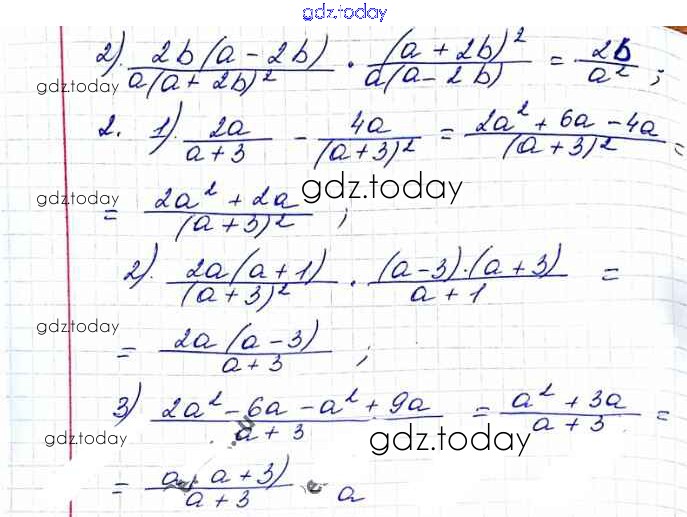 gdz.today
2). 2b(a - 2b)/a(a + 2b)² · (a + 2b)²/a(a - 2b) = 2b/a² ;
gdz.today
2. 1). 2a/(a + 3) - 4a/(a + 3)² = (2a² + 6a - 4a)/(a + 3)² =
gdz.today
gdz.today
= (2a² + 2a)/(a + 3)² ;
2). 2a(a + 1)/(a + 3)² · (a - 3)·(a + 3)/(a + 1) =
gdz.today
= 2a(a - 3)/(a + 3) ;
3) (2a² - 6a - a² + 9a)/(a + 3) = (a² + 3a)/(a + 3) =
gdz.today
gdz.today
= a(a + 3)/(a + 3) = a